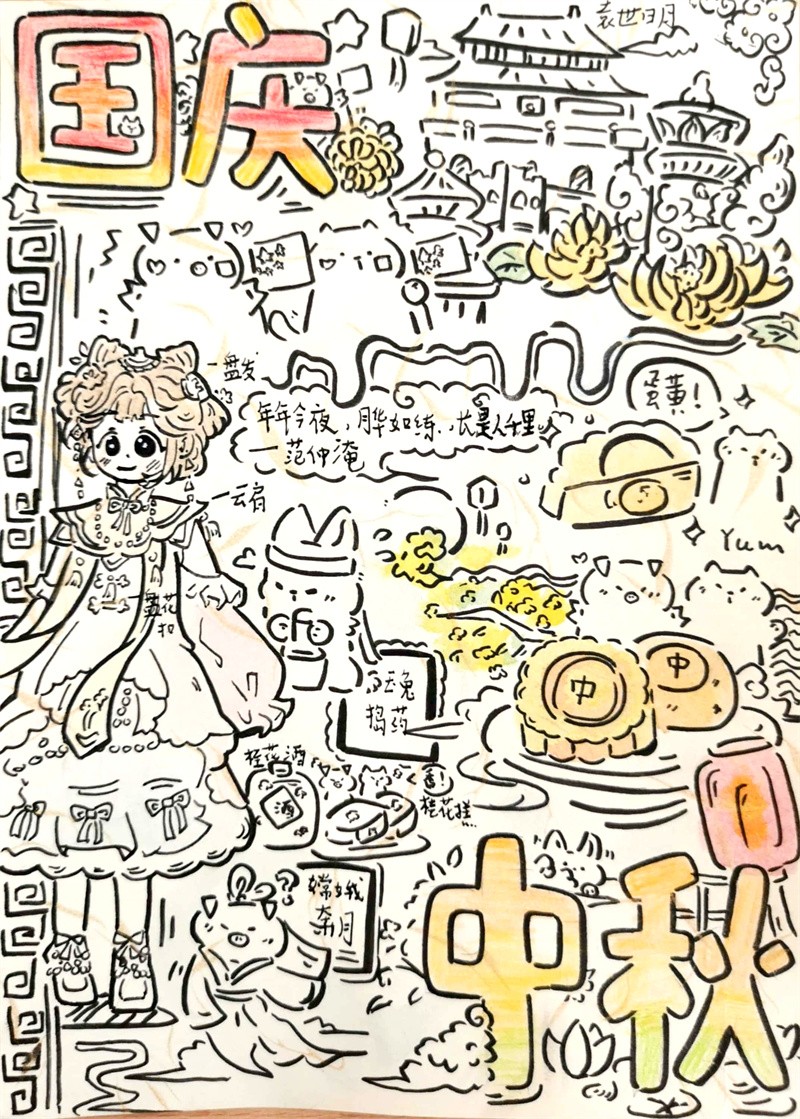 国庆
盘发
年年今夜，月华如练，长是人千里
—范仲淹
蛋黄！
云肩
Yum
盘花
扣
玉兔
捣药
中
中
桂花酒
酒
桂花
嫦娥
奔月
??
中秋